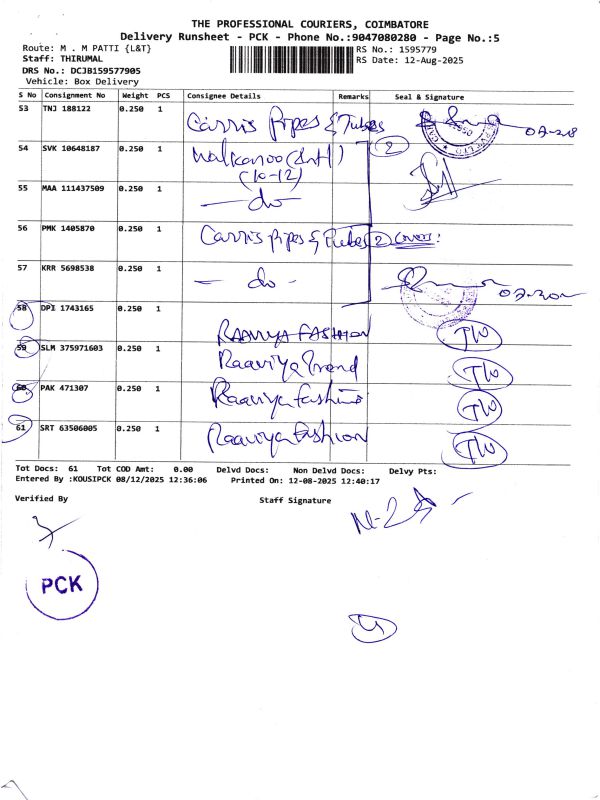 THE PROFESSIONAL COURIERS, COIMBATORE
Delivery Runsheet - PCK - Phone No.:9047080280 - Page No.:5
Route: M . M PATTI {L&T} RS No.: 1595779
Staff: THIRUMAL RS Date: 12-Aug-2025
DRS No.: DCJB159577905
Vehicle: Box Delivery
S No Consignment No Weight PCS Consignee Details Remarks Seal & Signature
53 TNJ 188122 0.250 1 Carris Pipes & Tubes
54 SVK 10648187 0.250 1 (10-12) 2
55 MAA 111437509 0.250 1 — do —
56 PMK 1405870 0.250 1 Carris pipes & Tubes 2 covers:
57 KRR 5698538 0.250 1 — do -
58 DPI 1743165 0.250 1 RAAVIYA FASHION T/W
59 SLM 375971603 0.250 1 Raaviya Trend T/W
60 PAK 471307 0.250 1 Raaviya fashion T/W
61 SRT 63506005 0.250 1 Raaviya fashion T/W
Tot Docs: 61 Tot COD Amt: 0.00 Delvd Docs: Non Delvd Docs: Delvy Pts:
Entered By :KOUSIPCK 08/12/2025 12:36:06 Printed On: 12-08-2025 12:40:17
Verified By Staff Signature
PCK